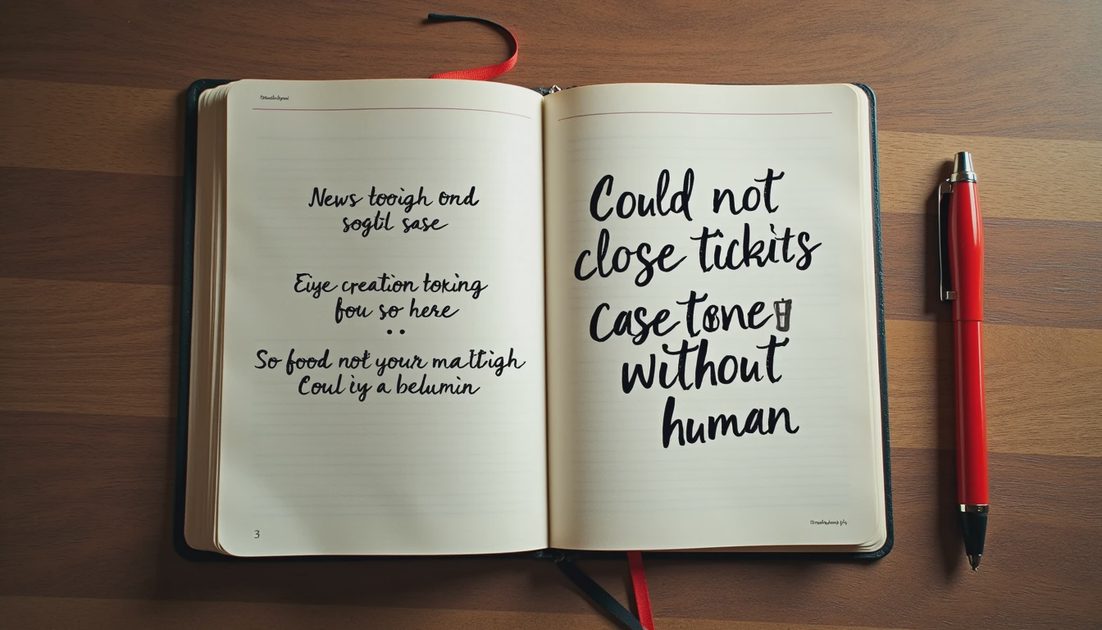 News tooigh ond
sogtil sase
Eiye creation toking
fou so here
So food not your maltigh
Coul iy a belumin
3
Could not
close tickits
case tone
without
human